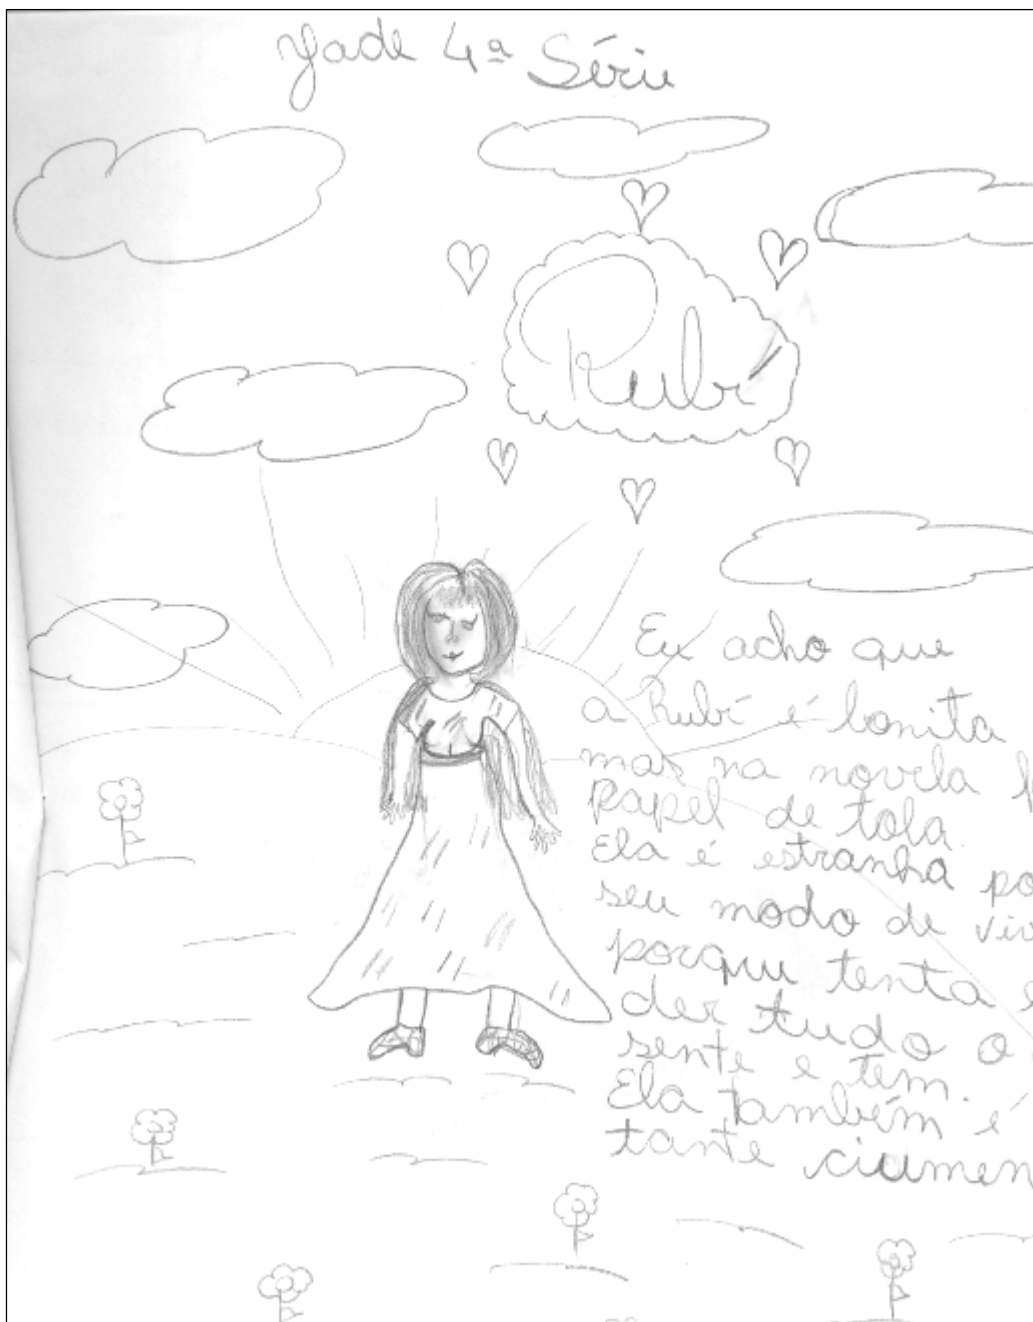 Jade 4ª Série
Rubí
Eu acho que
a Rubí é bonita
mas na novela f
papel de tola.
Ela é estranha po
seu modo de viv
porque tenta e
der tudo o
sente e tem.
Ela também é
tante ciumen